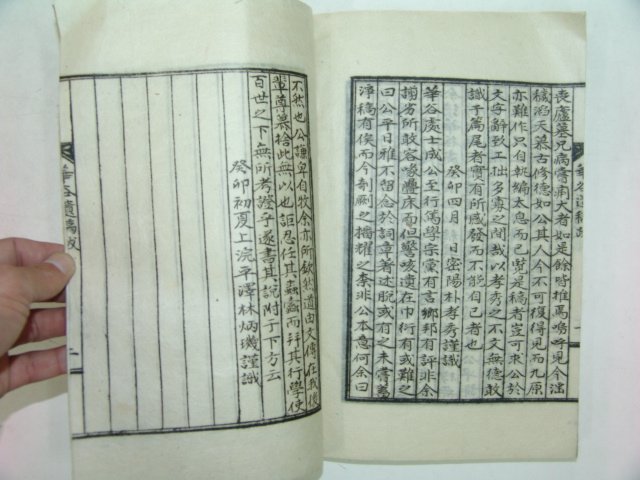 喪廬墓兄病嘗痢大者如是餘時推焉嗚呼見今滔
穢滔天慕古修德如公其人今不可復得見而九原
亦難作只自執編太息而已覽是稿者豈可求公於
文字辭致工拙多寡之間哉以孝秀之不文無德敢
識于篇尾者實有所感發而不能自己者也
癸卯四月 日密陽朴孝秀謹識
華谷處士成公至行篤學宗黨有言鄉邦有評非余
謭劣所敢容喙疊床而但謦咳遺在巾衍有或難之
曰公平日雅不留念於詞章著述脫或有之未嘗
淨稿有俟而今剞劂之播耀之豈非公本意何余曰
華谷遺稿跋
不然也公謙卑自牧余亦所欽然道由文傳在我後
曷慕捨此無以也詎忍任其蟲蠹而拜其行學使
百世之下無所考證乎遂書其說附于下方云
癸卯初夏上浣平澤林炳璣謹識
華谷遺稿跋